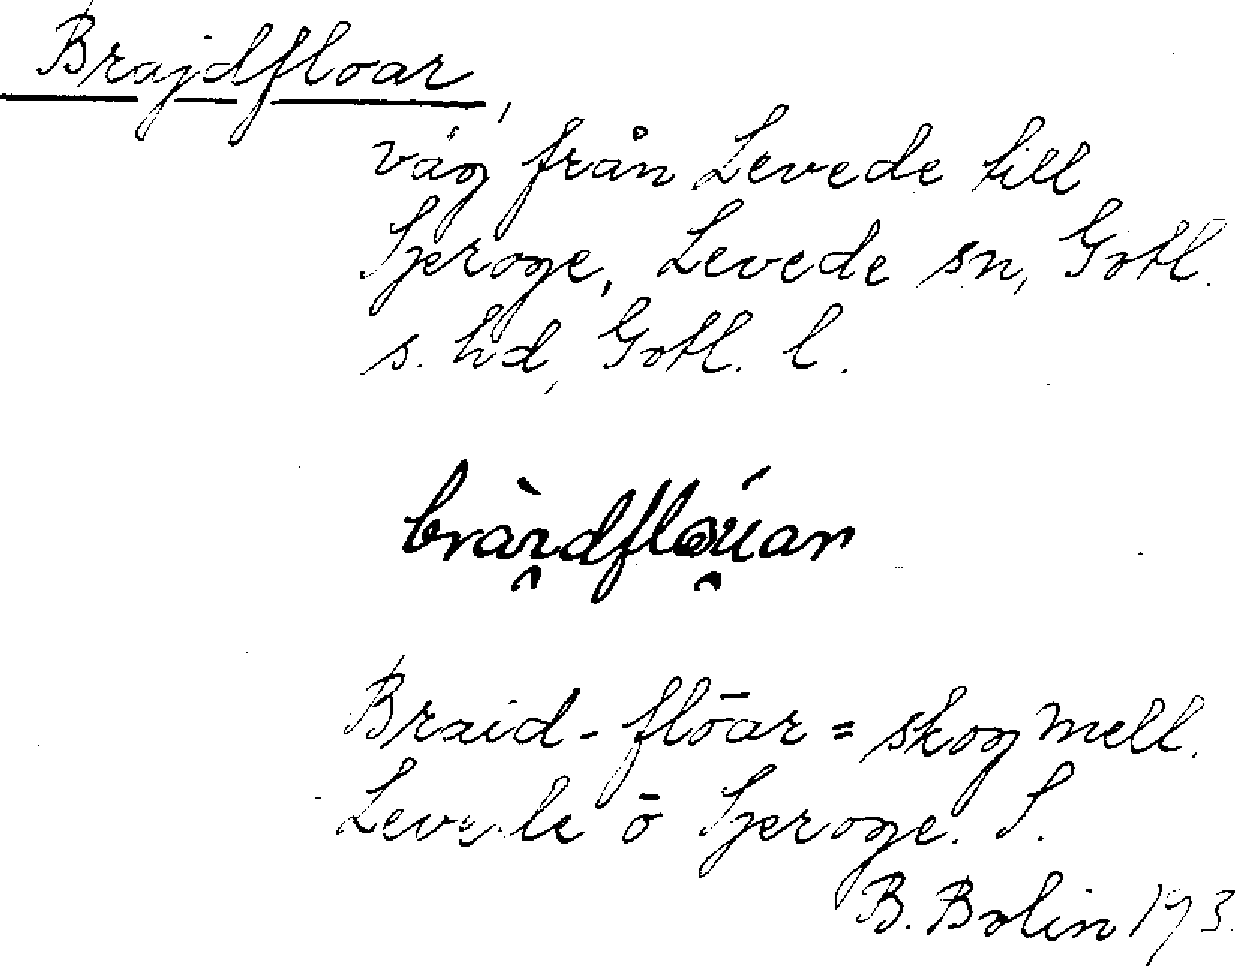 Brajdfloar,
väg från Levede till
Sproge, Levede sn, Gotl.
s. hd, Gotl. l.
Braid-flōar = skog mell.
Levede ō Sproge. S.
B. Bolin 193